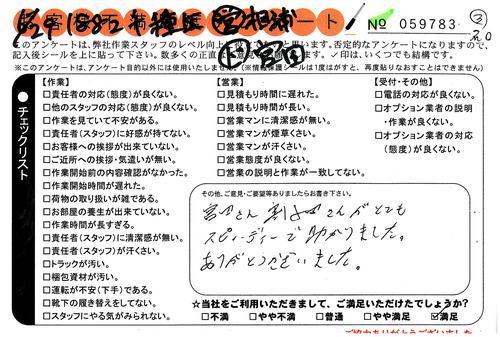 No 059783
このアンケートは、弊社作業スタッフのレベル向上
思います。否定的なアンケートになりますので、
記入後シールを上に貼って下さい。多数のご
お願い致します。✓印は、いくつでも結構です。
※このアンケートは、アンケート目的以外には使用いたしません。(※情報保護シールは1度はがすと、再度貼りなおすことはできません)
●チェックリスト
【作業】
□責任者の対応(態度)が良くない。
□他のスタッフの対応(態度)が良くない。
□作業を見ていて不安がある。
□責任者(スタッフ)に好感が持てない。
□お客様への挨拶が出来ていない。
□ご近所への挨拶・気遣いが無い。
□作業開始前の内容確認がなかった。
□作業開始時間が遅れた。
□荷物の取り扱いが雑である。
□お部屋の養生が出来ていない。
□作業時間が長すぎる。
□責任者(スタッフ)に清潔感が無い。
□責任者(スタッフ)が汗くさい。
□トラックが汚い。
□梱包資材が汚い。
□運転が不安(下手)である。
□靴下の履き替えをしてない。
□スタッフにやる気がみられない。
【営業】
□見積もり時間に遅れた。
□見積もり時間が長い。
□営業マンに清潔感が無い。
□営業マンが煙草くさい。
□営業マンが汗くさい。
□営業態度が良くない。
□営業の説明と作業が一致してない。
【受付・その他】
□電話の対応が良くない。
□オプション業者の説明
・作業が良くない。
□オプション業者の対応
(態度)が良くない。
その他、ご意見・ご要望等ありましたらお書き下さい。
スピーディーで助かりました。
ありがとうございました。
☆当社をご利用いただきまして、ご満足いただけたでしょうか?
□不満 □やや不満 □普通 □やや満足 ☑満足
ご協力ありがとうございました